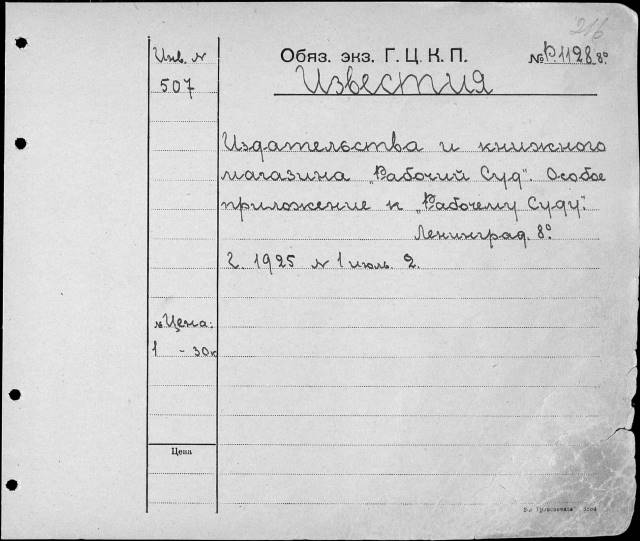 216
Инв. N
507
Обяз. экз. Г. Ц. К. П.
№ Р.1128 8º
Известия
Издательства и книжного
магазина „Рабочий Суд". Особое
приложение к „Рабочему Суду".
Ленинград. 8º.
Г. 1925 N 1 июль. 2.
№ Цена:
1 - 30к
Цена